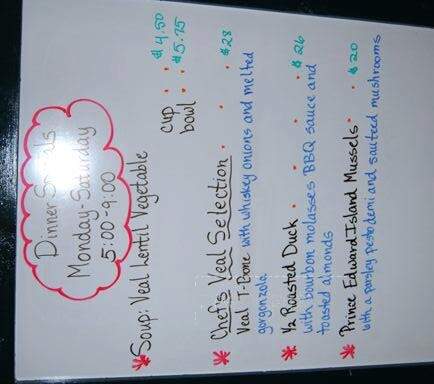 Dinner Specials
Monday-Saturday
5:00-9:00
*Soup: Veal Lentil Vegetable
cup . . $4.50
bowl . . $5.75
*Chef's Veal Selection . . . $28
Veal T-Bone with whiskey onions and melted
gorgonzola
*1/2 Roasted Duck . . . . $26
with bourbon molasses BBQ sauce and
toasted almonds
*Prince Edward Island Mussels . . $20
with a parsley pesto demi and sauteed mushrooms